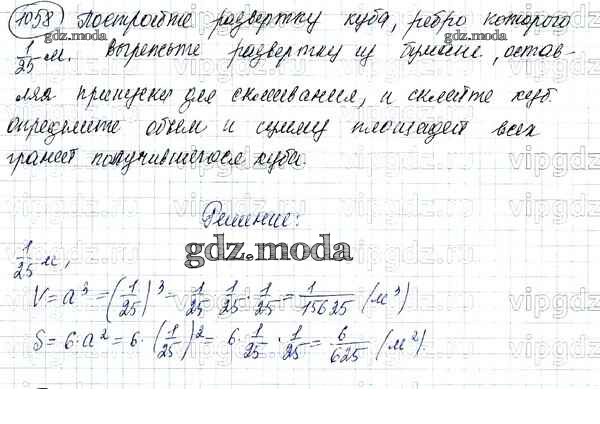 1058) Постройте развертку куба, ребро которого
1/25 м. Вырежьте развертку из бумаги, остав-
ляя припуски для склеивания, и склейте куб.
Определите объем и сумму площадей всех
граней получившегося куба.
Решение:
1/25 м,
V = a³ = (1/25)³ = 1/25 · 1/25 · 1/25 = 1/15625 (м³)
S = 6·a² = 6·(1/25)² = 6 · 1/25 · 1/25 = 6/625 (м²).
gdz.moda
gdz.moda
gdz.moda
gdz.moda
vipgdz